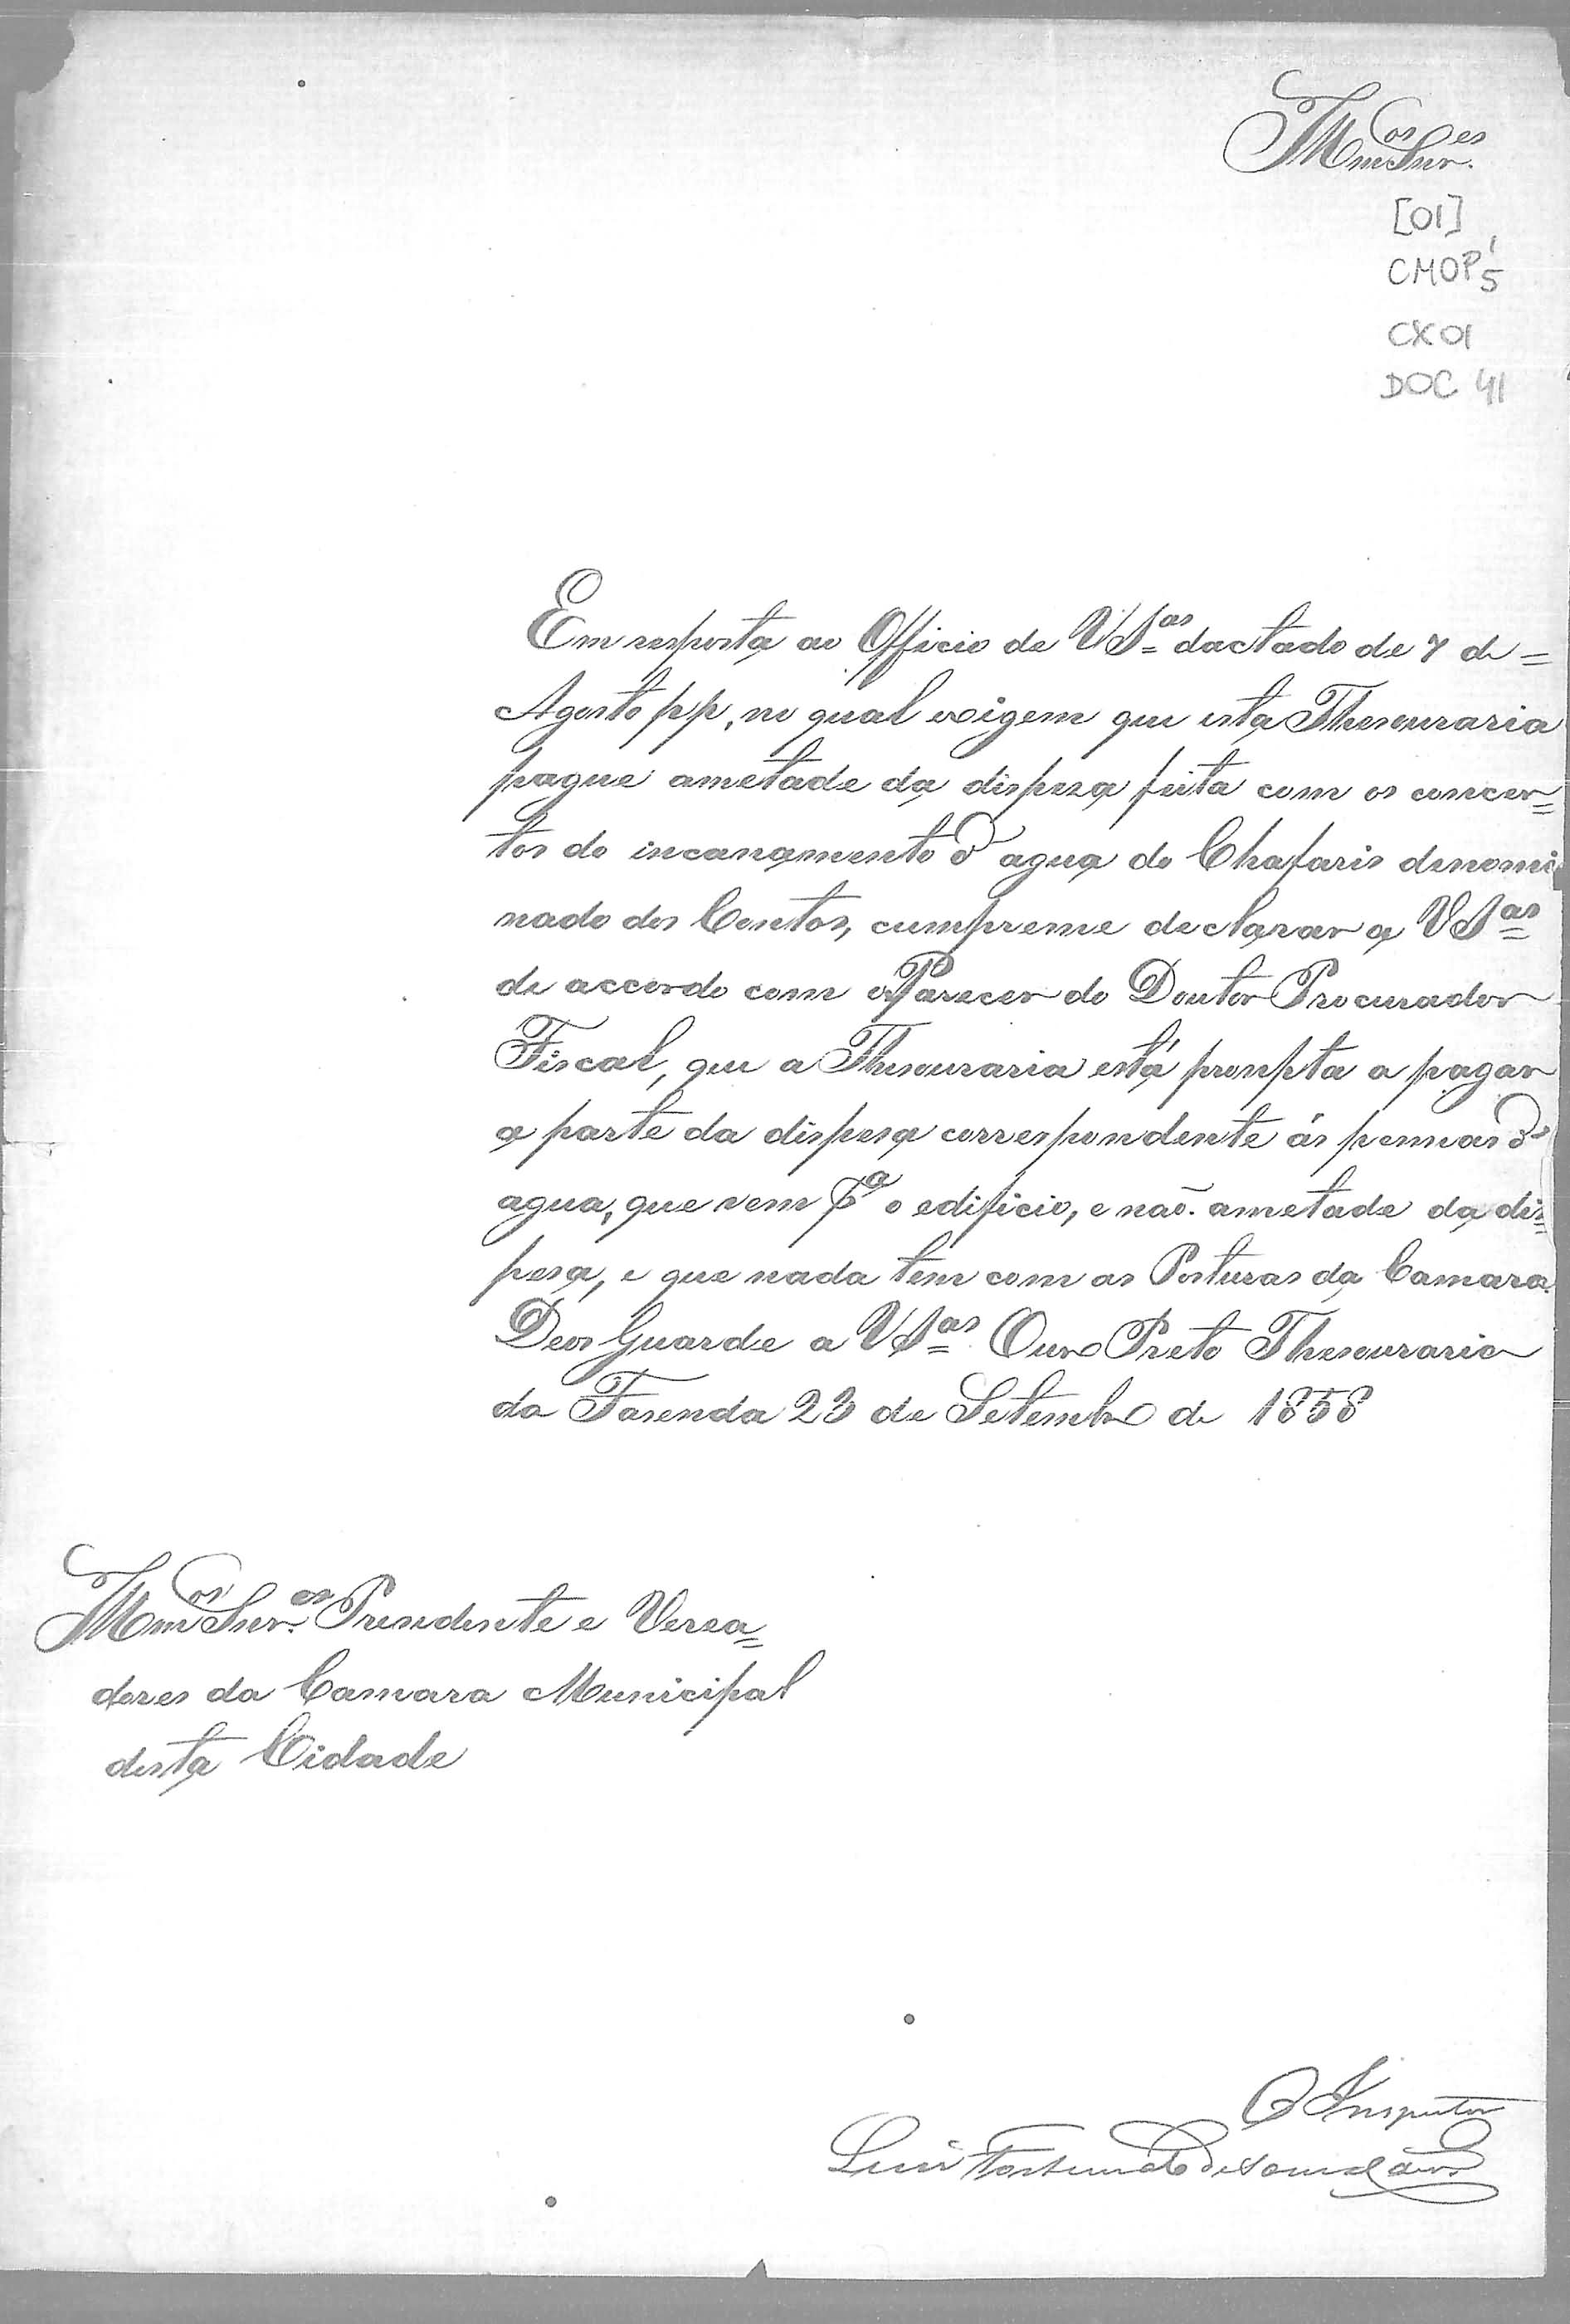 Illm.os Snr.es
[01]
CMOP 1/5
CX 01
DOC 41
Em resposta ao Officio de VS.as dactado de 7 de =
Agosto pp, no qual exigem que esta Thesouraria
pague ametade da dispeza feita com os concer=
tos do incanamento d' agua do Chafaris denomi
nado dos Contos, cumpreme declarar a VS.as
de accordo com o Parecer do Doutor Procurador
Fiscal, que a Thesouraria está prompta a pagar
a parte da dispesa correspondente ás pennas d'
agua, que vem p.a o edificio, e não ametade da dis=
pesa, e que nada tem com as Posturas da Camara.
Deos Guarde a VS.as Ouro Preto Thesouraria
da Fasenda 23 de Setembro de 1858
Illm.os Snr.es Presidente e Verea=
dores da Camara Municipal
desta Cidade
O Inspector
Luis Fortunato de Souza